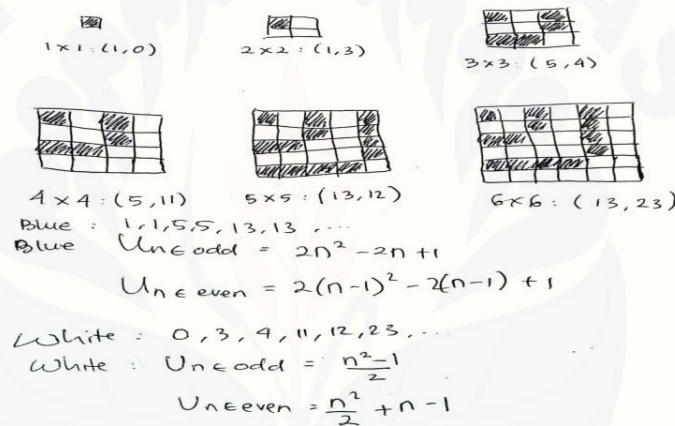 1×1:(1,0)
2×2:(1,3)
3×3:(5,4)
4×4:(5,11)
5×5:(13,12)
6×6:(13,23)
Blue : 1,1,5,5,13,13,...
Blue Un∈odd = 2n²-2n+1
Un∈even = 2(n-1)²-2(n-1)+1
White : 0,3,4,11,12,23,...
White : Un∈odd = n²-1/2
Un∈even = n²/2+n-1